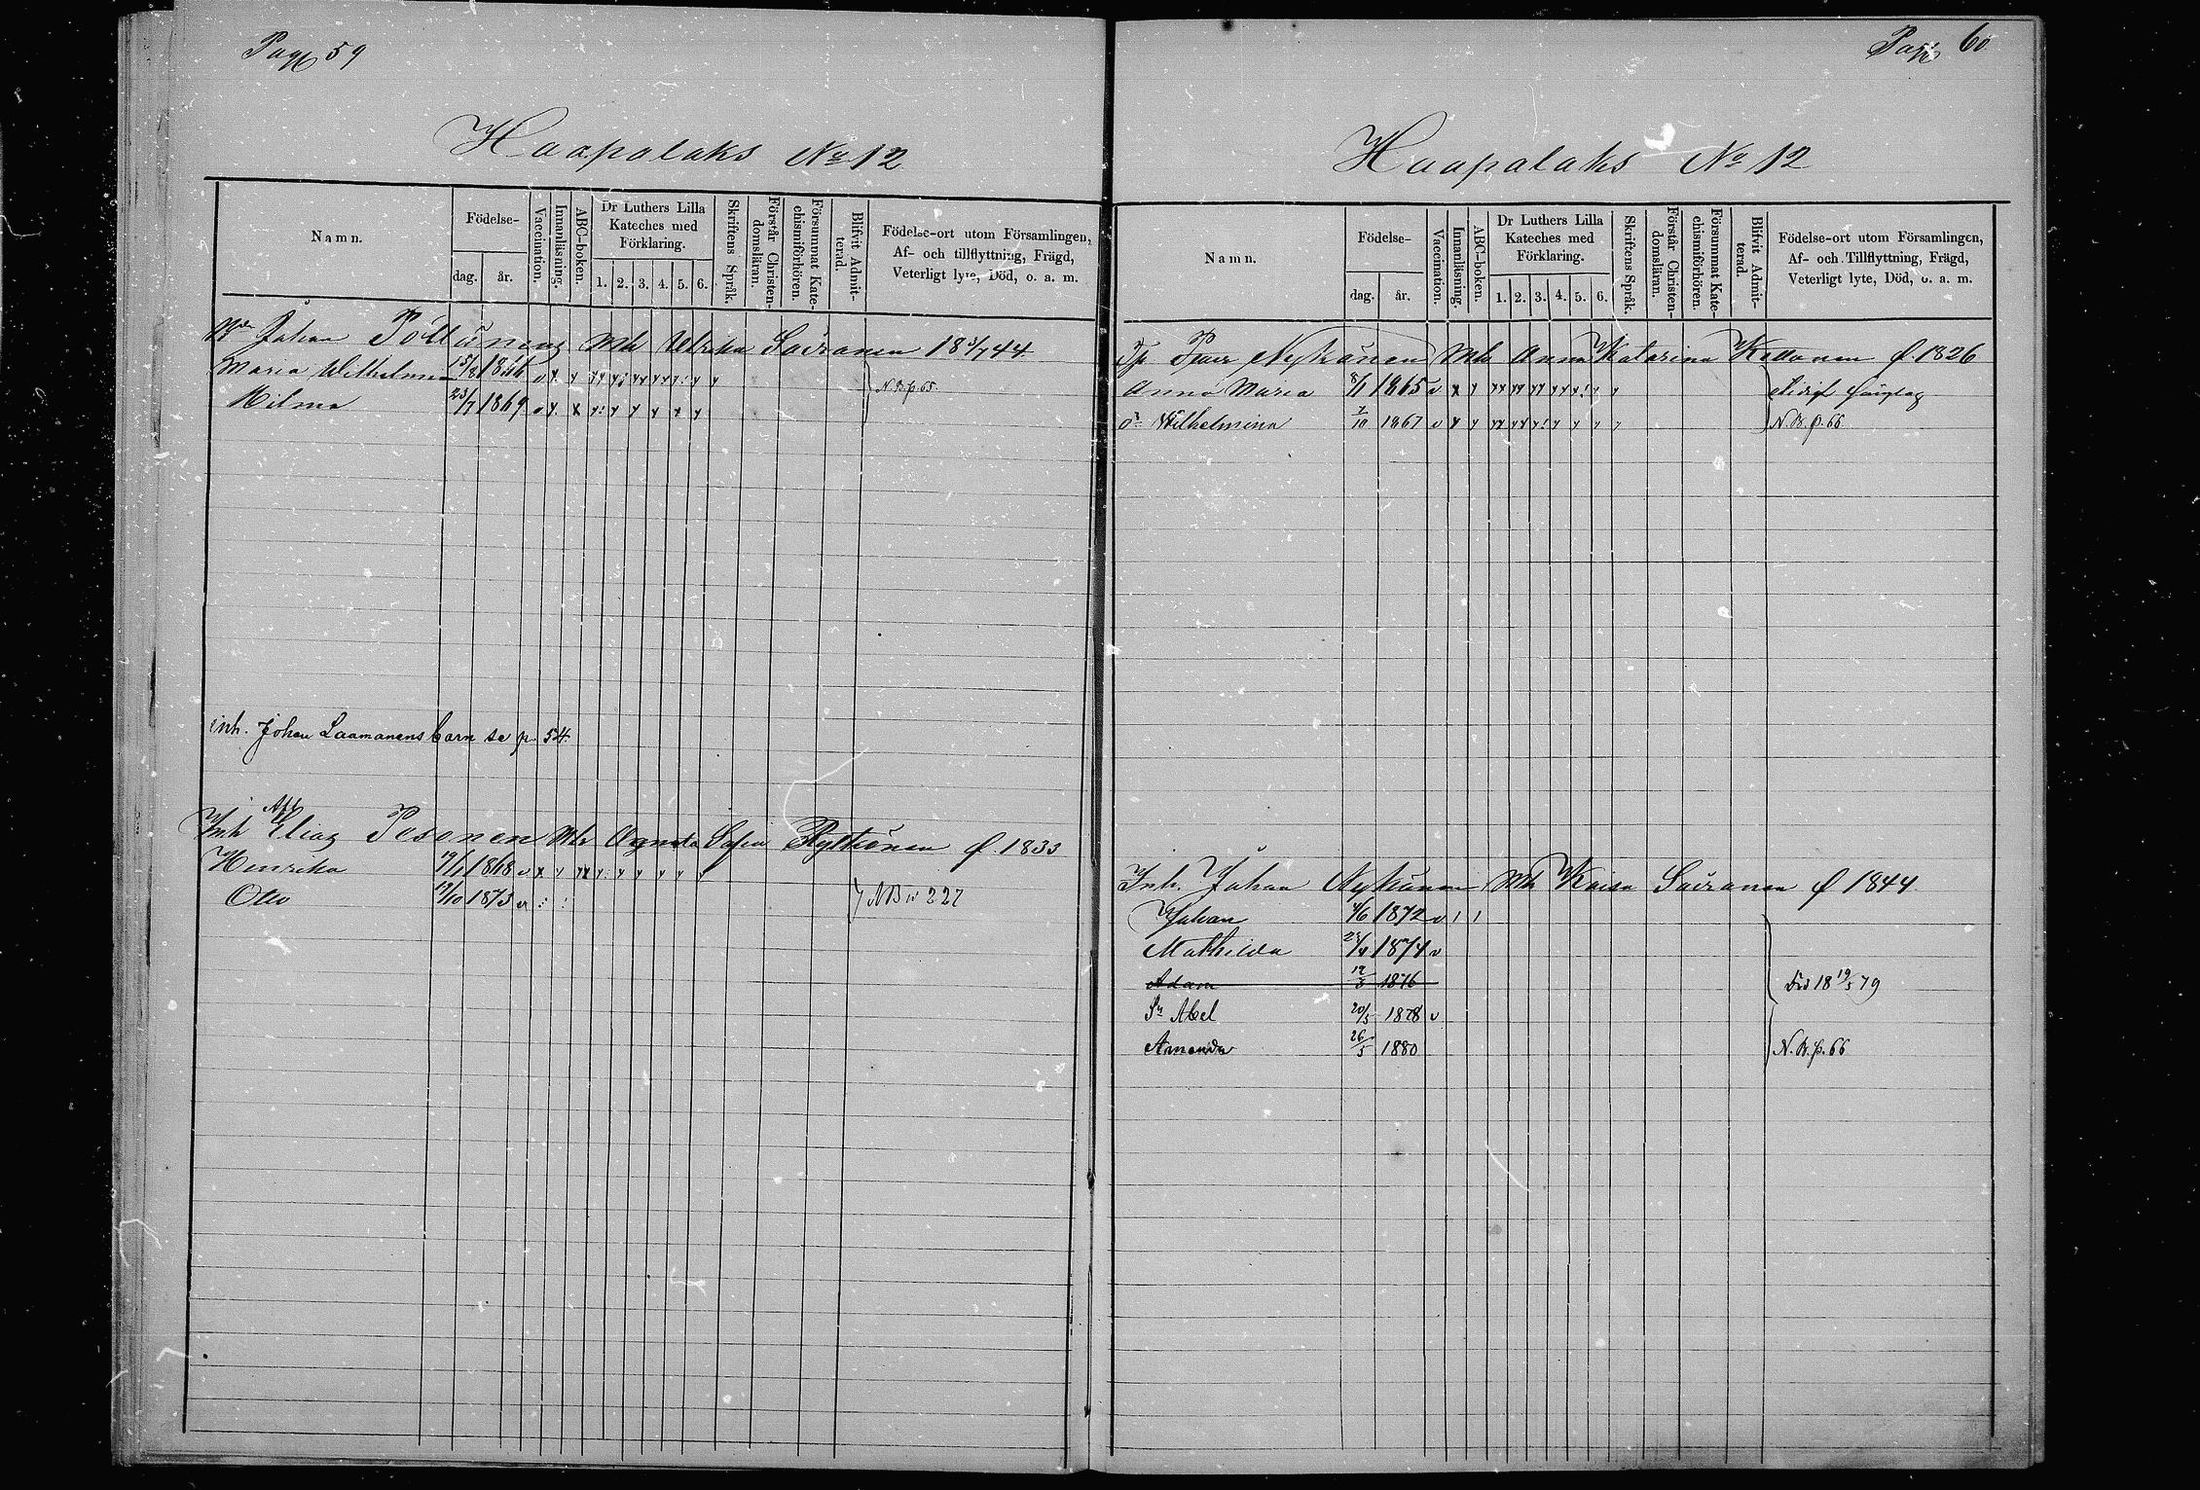 Pag 59
Haapalaks No 12
Namn.
Födelse-
dag.
år.
Vaccination.
Innanläsning.
ABC-boken.
Dr Luthers Lilla Kateches med Förklaring.
1. 2. 3. 4. 5. 6.
Skriftens Språk.
Förstår Christendomsläran.
Försummat Katechismiförhören.
Blifvit Admitterad.
Födelse-ort utom Församlingen, Af- och tillflyttning, Frägd, Veterligt lyte, Död, o. a. m.
Johan Pöllänens Mh Ulrika Sairanen 18 3/7 44
Maria Wilhelmina 15/8 1866 N. B. p. 65.
Hilma 23/7 1869
inh. Johan Laamanens barn se p. 54
Inh Afl Elias Pesonen Mh Agneta Sofia Rytkönen f. 1833
Henrika 19/1 1868
Otto 19/10 1873 NB 227
Pag 60
Haapalaks No 12
Namn.
Födelse-
dag.
år.
Vaccination.
Innanläsning.
ABC-boken.
Dr Luthers Lilla Kateches med Förklaring.
1. 2. 3. 4. 5. 6.
Skriftens Språk.
Förstår Christendomsläran.
Försummat Katechismiförhören.
Blifvit Admitterad.
Födelse-ort utom Församlingen, Af- och Tillflyttning, Frägd, Veterligt lyte, Död, o. a. m.
Nykänen Mh Anna Katarina f. 1826
Anna Maria 8/1 1865
Dr Wilhelmina 7/10 1867 N. B. p. 66
Inh. Johan Nykänen Mh Kaisa Sairanen f 1844
Johan 4/6 1872
Mathilda 23/4 1874
Adam 12/3 1876 Död 18 19/5 79
Sn Abel 20/5 1878
Amanda 26/5 1880 N. B. p. 66